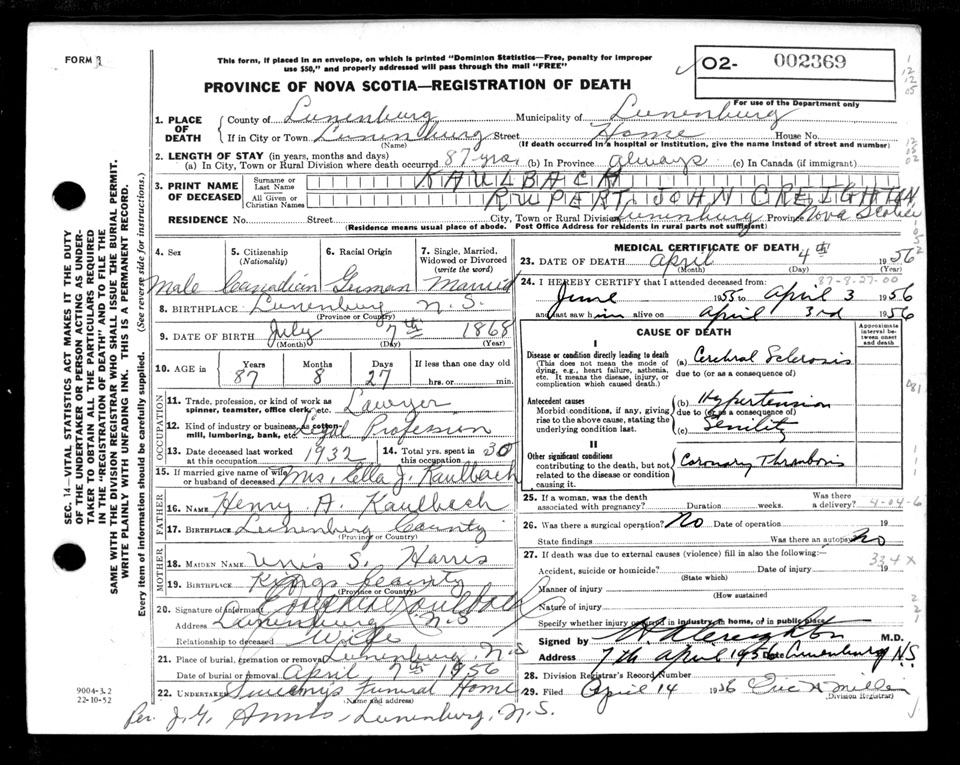 FORM 2
This form, if placed in an envelope, on which is printed "Dominion Statistics—Free, penalty for improper
use $50," and properly addressed will pass through the mail "FREE"
O2- 002369
PROVINCE OF NOVA SCOTIA—REGISTRATION OF DEATH
For use of the Department only
1. PLACE OF DEATH
County of Lunenburg Municipality of Lunenburg
If in City or Town Lunenburg Street Home House No.
(Name) (If death occurred in a hospital or institution, give the name instead of street and number)
2. LENGTH OF STAY (in years, months and days)
(a) In City, Town or Rural Division where death occurred 87 yrs. (b) In Province always (c) In Canada (if immigrant)
3. PRINT NAME OF DECEASED
Surname or Last Name KAULBACH
All Given or Christian Names RUPERT JOHN CREIGHTON
RESIDENCE No. Street City, Town or Rural Division Lunenburg Province Nova Scotia
(Residence means usual place of abode. Post Office Address for residents in rural parts not sufficient)
4. Sex 5. Citizenship (Nationality) 6. Racial Origin 7. Single, Married, Widowed or Divorced (write the word)
Male Canadian German Married
8. BIRTHPLACE Lunenburg N.S.
(Province or Country)
9. DATE OF BIRTH July 7th 1868
(Month) (Day) (Year)
10. AGE in Years Months Days If less than one day old
87 8 27 hrs. or min.
OCCUPATION
11. Trade, profession, or kind of work as spinner, teamster, office clerk, etc. Lawyer
12. Kind of industry or business, as cotton-mill, lumbering, bank, etc. Legal Profession
13. Date deceased last worked at this occupation 1932 14. Total yrs. spent in this occupation 30
15. If married give name of wife or husband of deceased Mrs. Ella J. Kaulbach
FATHER
16. NAME Henry A. Kaulbach
17. BIRTHPLACE Lunenburg County
(Province or Country)
MOTHER
18. MAIDEN NAME S. Harris
19. BIRTHPLACE Kings County
(Province or Country)
20. Signature of informant Kaulbach
Address Lunenburg N.S.
Relationship to deceased Wife
21. Place of burial, cremation or removal Lunenburg, N.S
Date of burial or removal April 7th 1956
22. UNDERTAKER Sweeny's Funeral Home
(Name and address)
Per. J. G. Lunenburg, N.S.
MEDICAL CERTIFICATE OF DEATH
23. DATE OF DEATH April 4th 1956
(Month) (Day) (Year)
87-8-27-00
24. I HEREBY CERTIFY that I attended deceased from:
June 1955 to April 3 1956
and last saw him alive on April 3rd 1956
CAUSE OF DEATH
Approximate interval between onset and death
I
Disease or condition directly leading to death
(This does not mean the mode of dying, e.g., heart failure, asthenia, etc. It means the disease, injury, or complication which caused death.)
(a) Cerebral Sclerosis
due to (or as a consequence of)
Antecedent causes
Morbid conditions, if any, giving rise to the above cause, stating the underlying condition last.
(b) Hypertension
due to (or as a consequence of)
(c) Senility
II
Other significant conditions
contributing to the death, but not related to the disease or condition causing it.
Coronary Thrombosis
25. If a woman, was the death associated with pregnancy? Duration weeks. Was there a delivery?
4-04-6
26. Was there a surgical operation? No Date of operation 19
State findings Was there an autopsy? No
27. If death was due to external causes (violence) fill in also the following:—
334 X
Accident, suicide or homicide? Date of injury 19
(State which)
Manner of injury
(How sustained
Nature of injury
Specify whether injury occurred in industry, in home, or in public place
Signed by Creighton M.D.
Address 7th April 1956 Date Lunenburg N.S.
28. Division Registrar's Record Number
29. Filed April 14 1956 Eric H Miller
(Division Registrar)
SEC. 14—VITAL STATISTICS ACT MAKES IT THE DUTY
OF THE UNDERTAKER OR PERSON ACTING AS UNDER-
TAKER TO OBTAIN ALL THE PARTICULARS REQUIRED
IN THE "REGISTRATION OF DEATH" AND TO FILE THE
SAME WITH THE DIVISION REGISTRAR WHO SHALL ISSUE THE BURIAL PERMIT.
WRITE PLAINLY WITH UNFADING INK. THIS IS A PERMANENT RECORD.
Every item of information should be carefully supplied. (See reverse side for instructions.)
9004-3.2
22-10-52